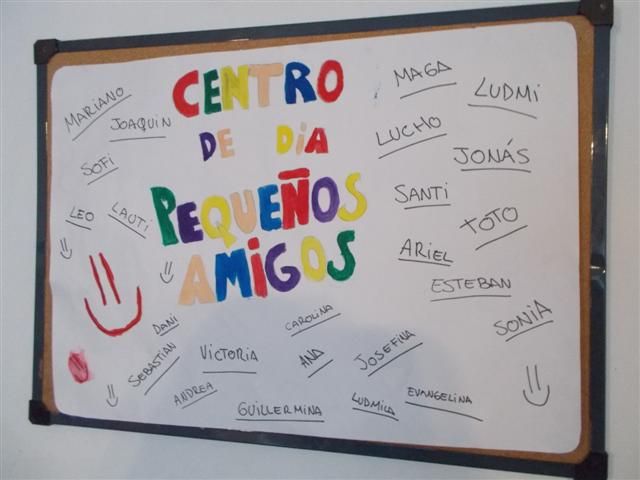 CENTRO
DE DIA
PEQUEÑOS
AMIGOS
MARIANO
JOAQUIN
SOFI
LEO
LAUTI
MAGA
LUDMI
LUCHO
JONÁS
SANTI
TOTO
ARIEL
ESTEBAN
SONIA
DANI
SEBASTIAN
VICTORIA
ANDREA
CAROLINA
ANA
JOSEFINA
GUILLERMINA
LUDMILA
EVANGELINA